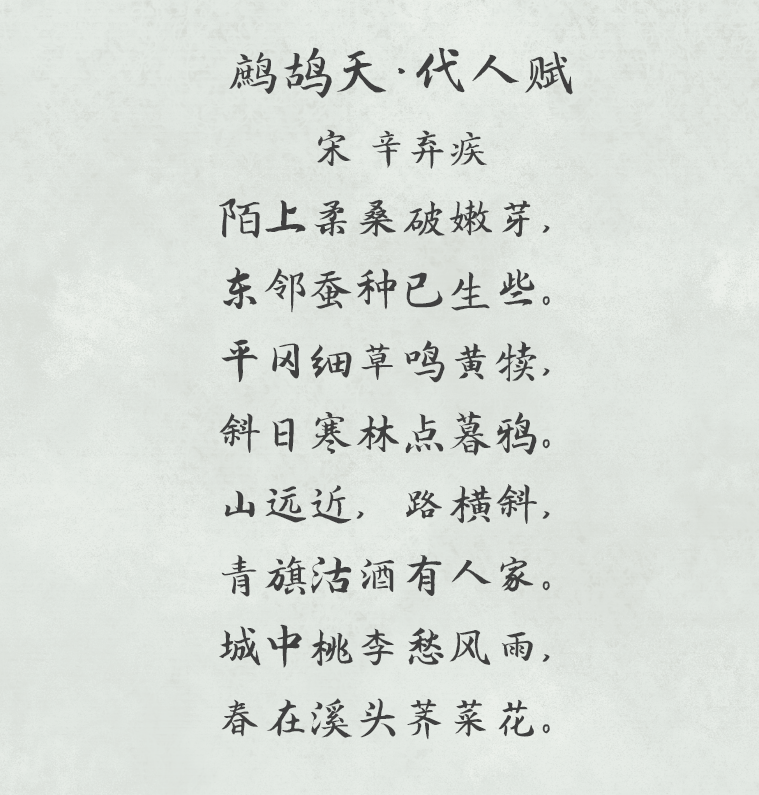 鹧鸪天·代人赋
宋 辛弃疾
陌上柔桑破嫩芽，
东邻蚕种已生些。
平冈细草鸣黄犊，
斜日寒林点暮鸦。
山远近， 路横斜，
青旗沽酒有人家。
城中桃李愁风雨，
春在溪头荠菜花。